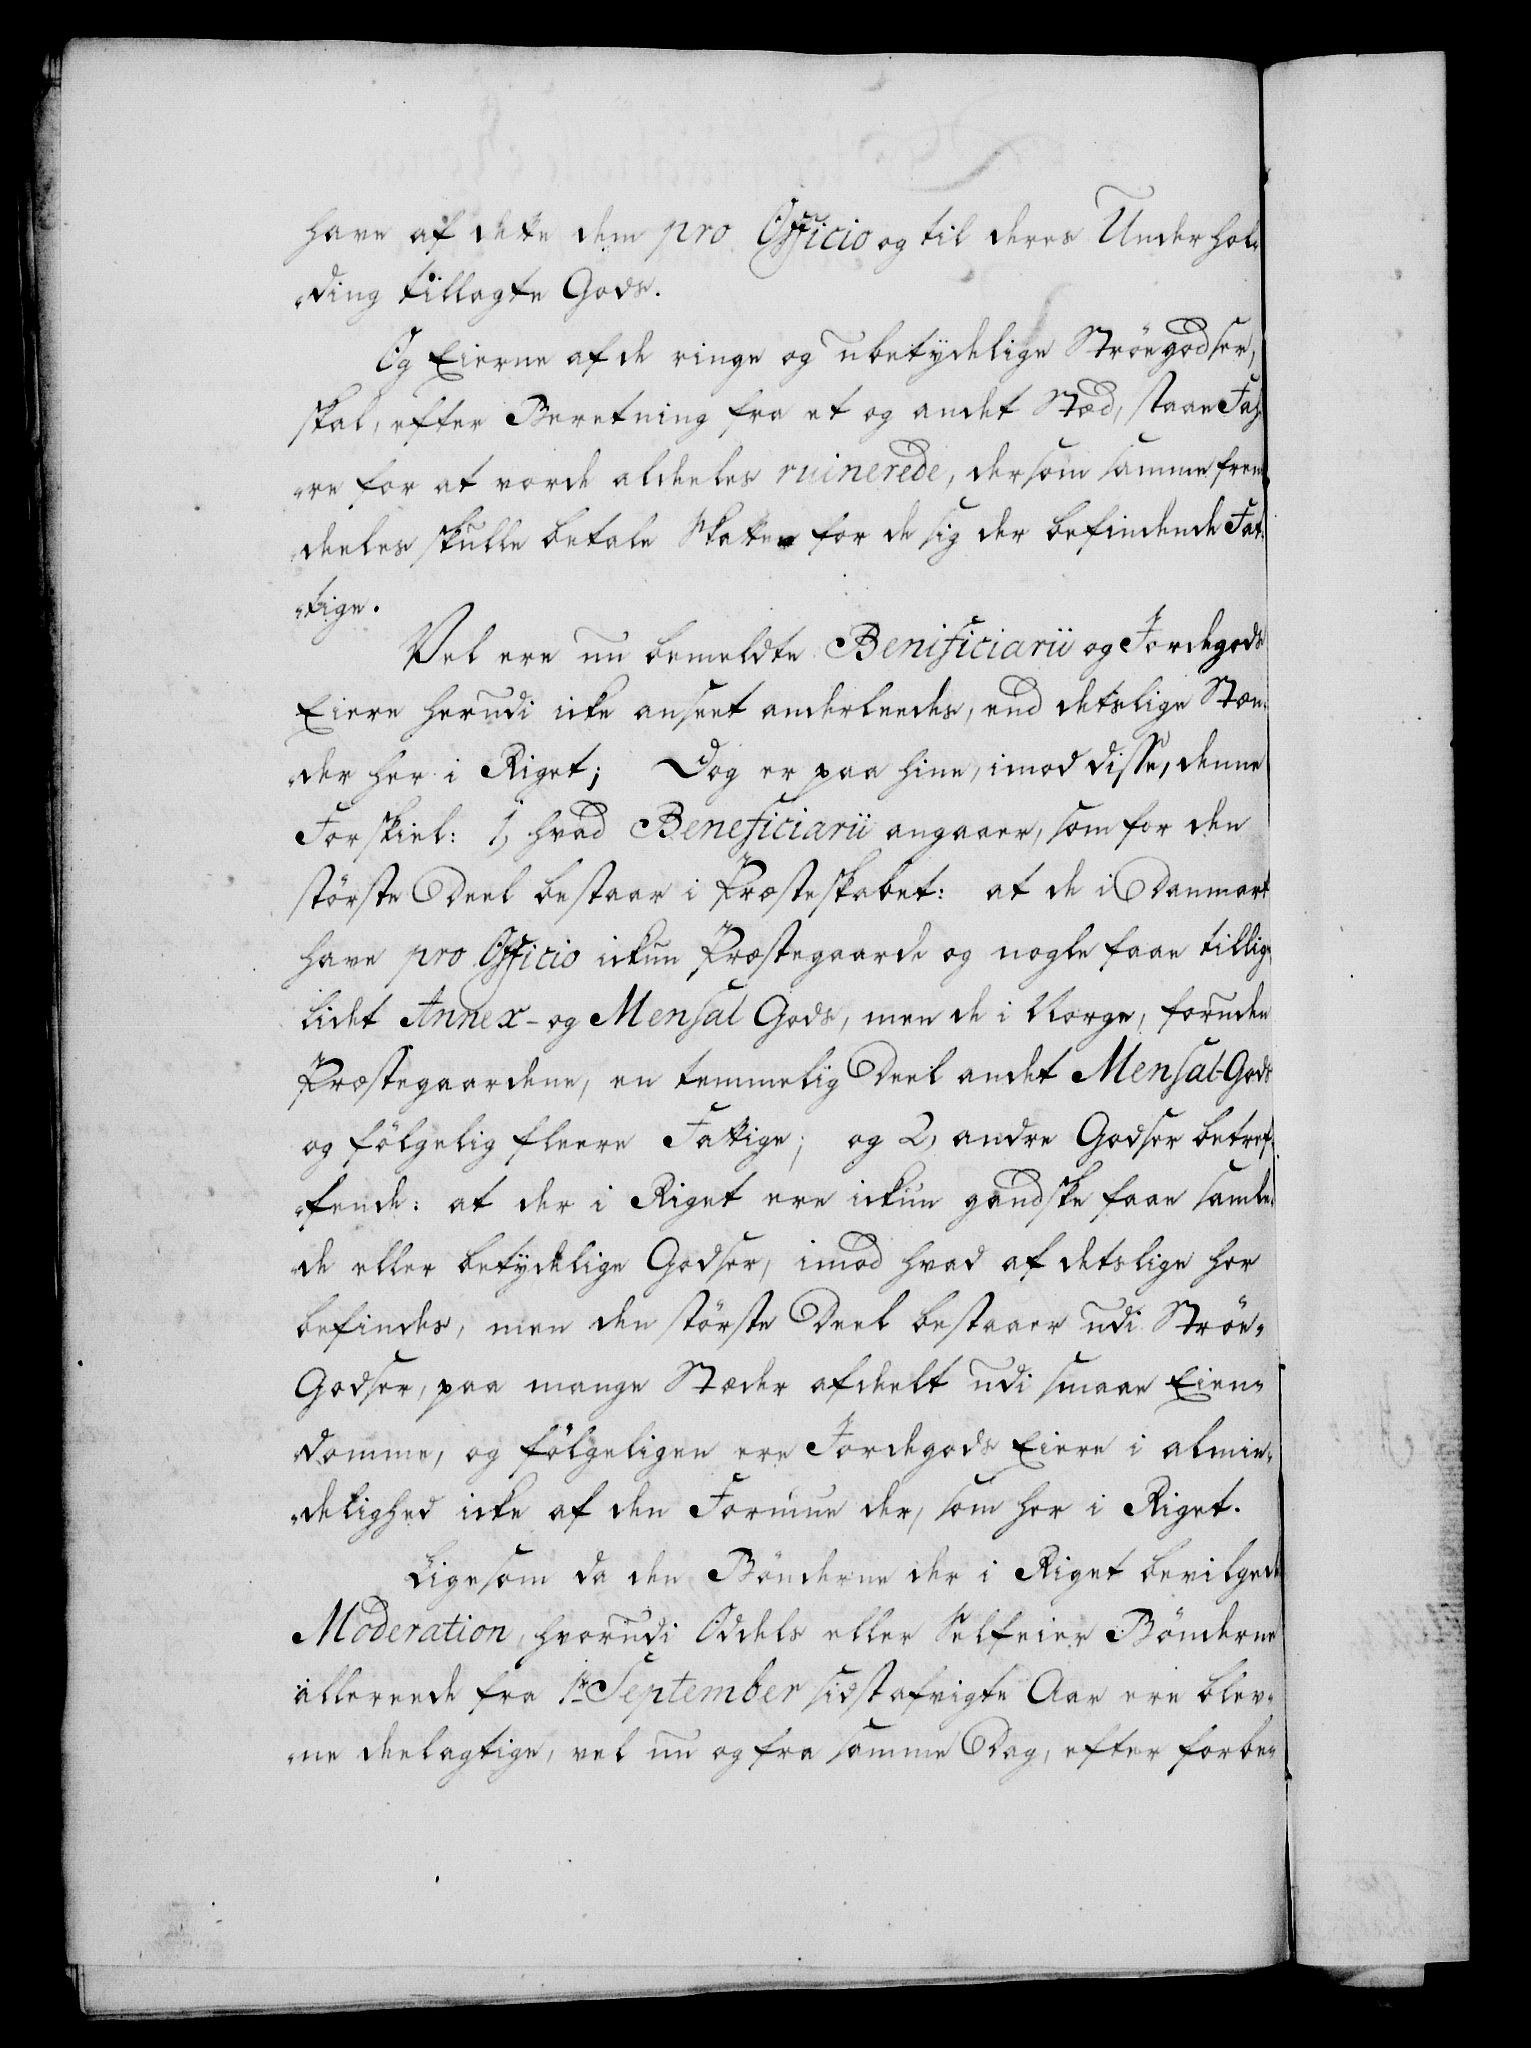 have af dette dem pro Officio og til deres Underhol-
ding tillagte Gods.
Og Eierne af de ringe og ubetydelige Ströegodser,
skal, efter Beretning fra et og andet Stæd, staae Fa-
re for at vorde aldeles ruinerede, dersom samme frem-
deeles skulle betale Skatten for de sig der befindende Fat-
tige.
Vel ere nu bemeldte Benificiarii og Jordegods
Eiere herudi icke anseet anderleedes, end detslige Stæn-
der her i Riget; Dog er paa hine, imod disse, denne
Forskiel: 1, hvad Beneficiarii angaaer, som for den
störste Deel bestaar i Præsteskabet: at de i Danmark
have pro Officio ickun Præstegaarde og nogle faae tillige
lidet Annex- og Mensal Gods, men de i Norge, foruden
Præstegaardene, en temmelig Deel andet Mensal-Gods
og fölgelig fleere Fattige; og 2, andre Godser betref-
fende: at der i Riget ere ickun gandske faae samle-
de eller betydelige Godser, imod hvad af detslige her
befindes, men den störste Deel bestaaer udi Ströe-
Godser, paa mange Stæder afdeelt udi smaae Eien-
domme, og fölgeligen ere Jordegods Eiere i almin-
delighed icke af den Formue der, som her i Riget.
Ligesom da den Bönderne der i Riget bevilgede
Moderation, hvorudi Oddels eller Selfeier Bönderne
allereede fra 1te September sidstafvigte Aar ere blev-
ne deelagtige, vel nu og fra samme Dag, efter forbe-